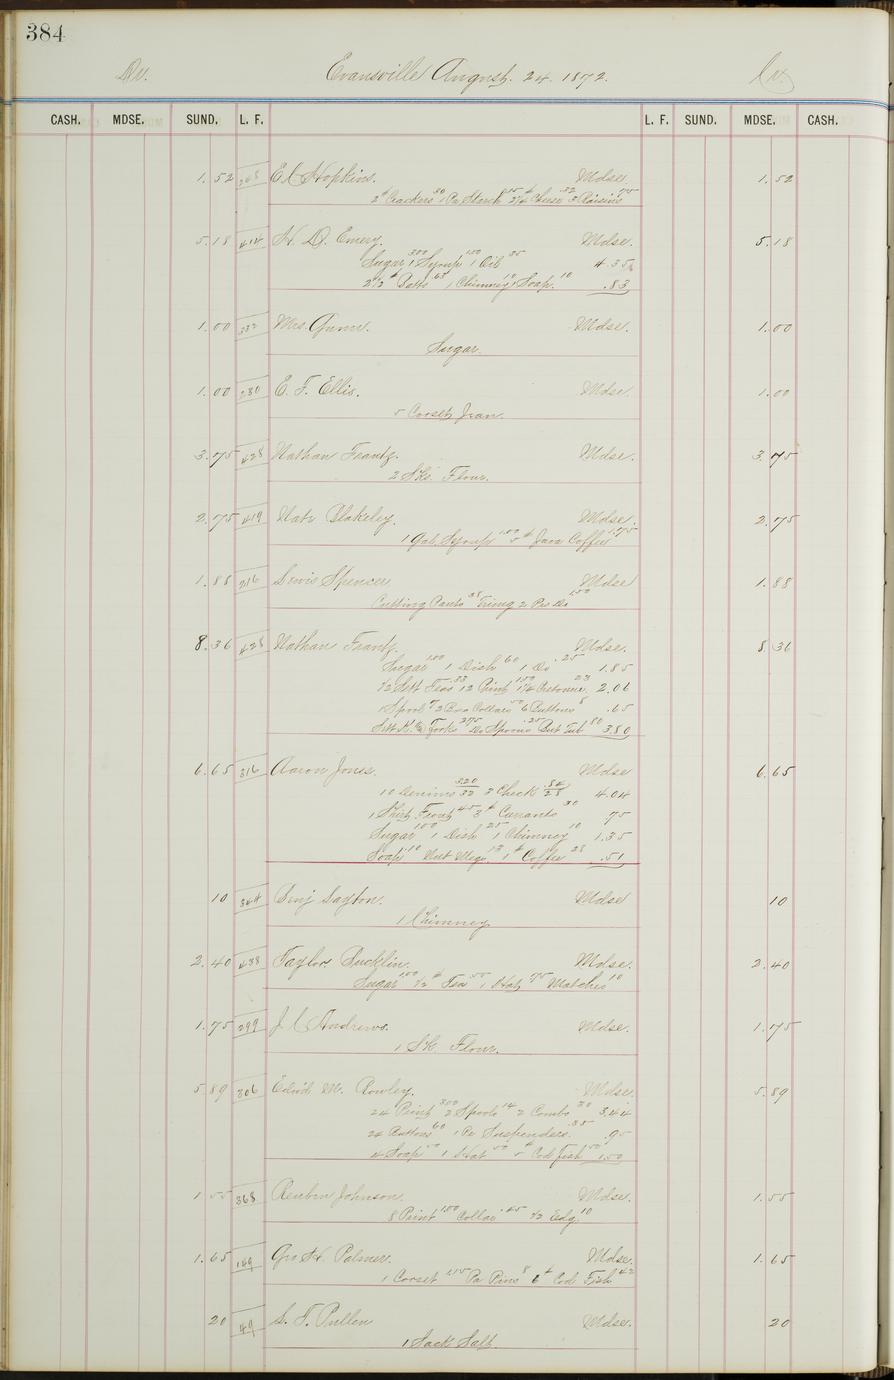 384
Dr. Evansville August. 24. 1872. Cr.
CASH. MDSE. SUND. L. F. L. F. SUND. MDSE. CASH.
1.52 E C Hopkins. Mdse. 1.52
2# Crackers 30 1 Pa Starch 15 2¼# Cheese 32 3 Raisins 75
5.18 414 H. D. Emery. Mdse. 5.18
Sugar 300 1 Syrup 100 1 Oil 35 4.35
2½# Batts 63 1 Chimney 10 Soap. 10 .83
1.00 332 Mrs. Mdse. 1.00
Sugar.
1.00 280 E. F. Ellis. Mdse. 1.00
5 Corset Jean.
3.75 428 Nathan Frantz. Mdse. 3.75
2 Sks. Flour.
2.75 419 Nate Blakeley. Mdse. 2.75
1 Gal. Syrup 1.00 5# Java Coffee 1.75
1.88 216 Lewis Spencer Mdse 1.88
Cutting Pants 38 Trimg 2 Prs Do 1.50
8.36 428 Nathan Frantz. Mdse. 8.36
Sugar 100 1 Dish 60 1 Do .25 1.85
½ Sett Teas 33 12 Print 150 1¼ Cretonne 23 2.06
1 Spool 7 2 Box Collars 50 6 Buttons 8 .65
Sett K. & Forks 275 Do Spoons .25 But Tub 80 3.80
6.65 316 Aaron Jones. Mdse 6.65
10 Denims 320/32 3 Check .84/28 4.04
1 Shirt Front 45 3# Currants 30 75
Sugar 100 1 Dish 25 1 Chimney 10 1.35
Soap .10 Nut Megs 13 1# Coffee 28 .51
10 364 Benj Saxton. Mdse 10
1 Chimney
2.40 438 Taylor Bucklin. Mdse. 2.40
Sugar 1.00 ½# Tea 55 1 Hat 75 Matches 10
1.75 299 J. C Andrews. Mdse. 1.75
1 Sk. Flour.
5.89 306 Edw'd M. Rowley. Mdse. 5.89
24 Print 300 2 Spools 14 2 Combs 30 3.44
24 Buttons 60 1 Pr Suspenders. .35 .95
4 Soap 50 1 Hat 50 5# Cod fish 50 1.50
1.55 368 Reuben Johnson. Mdse. 1.55
8 Print 1.00 Collar .45 ½ Edg. 10
1.65 Geo H. Palmer. Mdse. 1.65
1 Corset 1.15 Pa Pins 8 6# Cod Fish 42
20 49 S. F. Pullen Mdse. 20
1 Sack Salt.